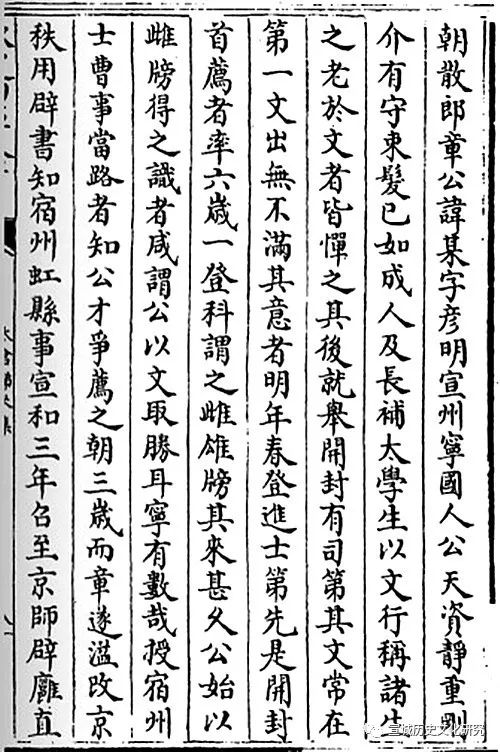 朝散郎章公諱某字彦明宣州寧國人公天資靜重剛
介有守束髮已如成人及長補太學生以文行稱諸生
之老於文者皆憚之其後就舉開封有司第其文常在
第一文出無不滿其意者明年春登進士第先是開封
首薦者率六歳一登科謂之雌雄牓其來甚久公始以
雌牓得之識者咸謂公以文取勝耳寧有數哉授宿州
士曹事當路者知公才爭薦之朝三歳而章遂溢改京
秩用辟書知宿州虹縣事宣和三年召至京師辟廱直
宣城历史文化研究